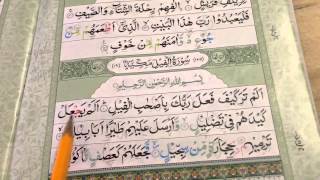 قُرَيْشٍ ۝ اِلٰفِهِمْ رِحْلَةَ الشِّتَآءِ وَالصَّيْفِ ۝
فَلْيَعْبُدُوْا رَبَّ هٰذَا الْبَيْتِ ۝ الَّذِيْٓ اَطْعَمَهُمْ مِّنْ
جُوْعٍ ۙ وَّاٰمَنَهُمْ مِّنْ خَوْفٍ ۝
سُوْرَةُ الْفِيْلِ مَكِّيَّةٌ
بِسْمِ اللّٰهِ الرَّحْمٰنِ الرَّحِيْمِ
اَلَمْ تَرَ كَيْفَ فَعَلَ رَبُّكَ بِاَصْحٰبِ الْفِيْلِ ۝ اَلَمْ يَجْعَلْ
كَيْدَهُمْ فِيْ تَضْلِيْلٍ ۝ وَّاَرْسَلَ عَلَيْهِمْ طَيْرًا اَبَابِيْلَ ۝
تَرْمِيْهِمْ بِحِجَارَةٍ مِّنْ سِجِّيْلٍ ۝ فَجَعَلَهُمْ كَعَصْفٍ مَّاْكُوْلٍ